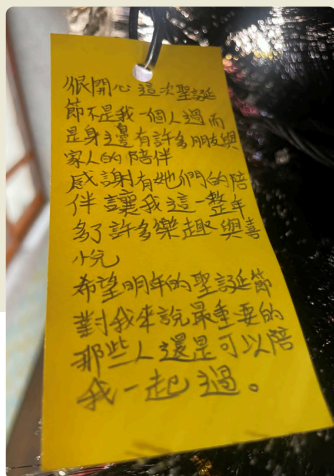 很開心這次聖誕
節不是我一個人過而
是身邊有許多朋友與
家人的陪伴
感謝有她們的陪
伴讓我這一整年
多了許多樂趣與喜
悅
希望明年的聖誕節
對我來說最重要的
那些人還是可以陪
我一起過。